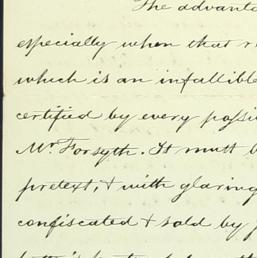 The advanta
especially when that r
which is an infallible
certified by every possi
Mr. Forsyth. It must b
pretext, & with glaring
confiscated & sold by p